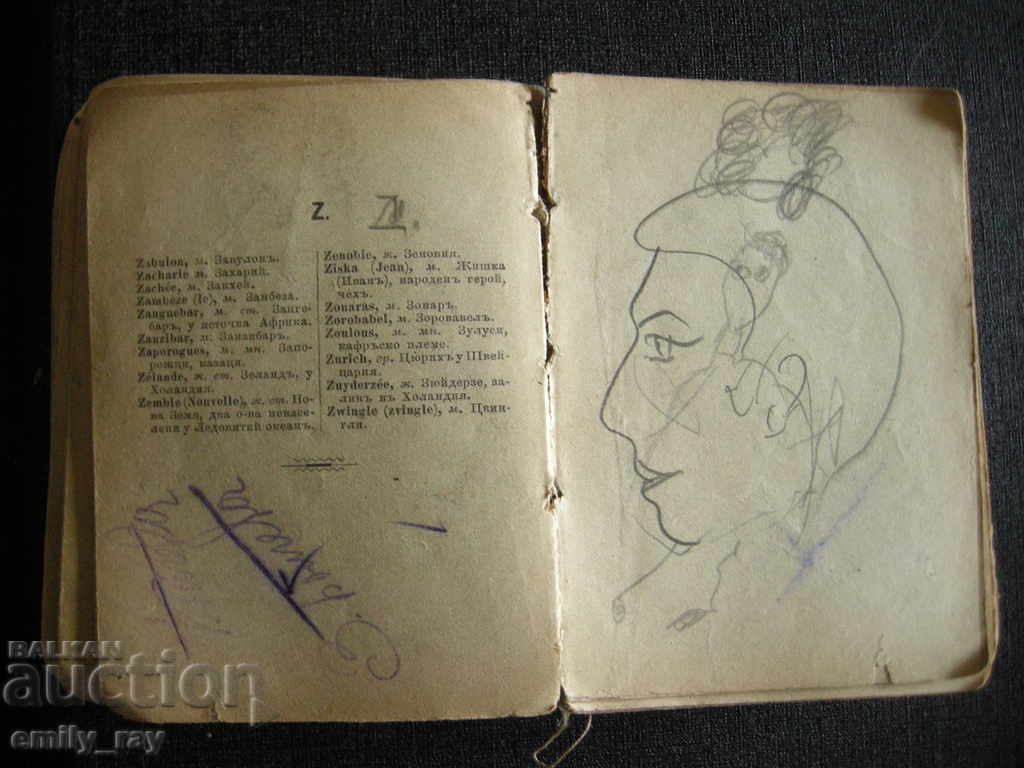 Z. Д.
Zabulon, м. Завулонъ.
Zacharie м. Захарий.
Zachée, м. Закхей.
Zambèze (le), м. Замбеза.
Zanguebar, м. ст. Занге-
баръ, у источна Африка.
Zanzibar, м. Занзибаръ.
Zaporogues, м. мн. Запо-
рожци, казаци.
Zélande, ж. ст. Зеландъ, у
Холандия.
Zemble (Nouvelle), ж. ст. Но-
ва Земя, два о-ва ненасе-
лени у Ледовитий океанъ.
Zenobie, ж. Зеновия.
Ziska (Jean), м. Жишка
(Иванъ), народенъ герой,
чехъ.
Zonaras, м. Зонаръ.
Zorobabel, м. Зоровавелъ.
Zoulous, м. мн. Зулуси,
кафръско племе.
Zurich, гр. Цюрихъ у Швей-
цария.
Zuyderzée, ж. Зюйдерзе, за-
ливъ въ Холандия.
Zwingle (zvingle), м. Цвин-
гли.
BALKAN
auction
emily_ray